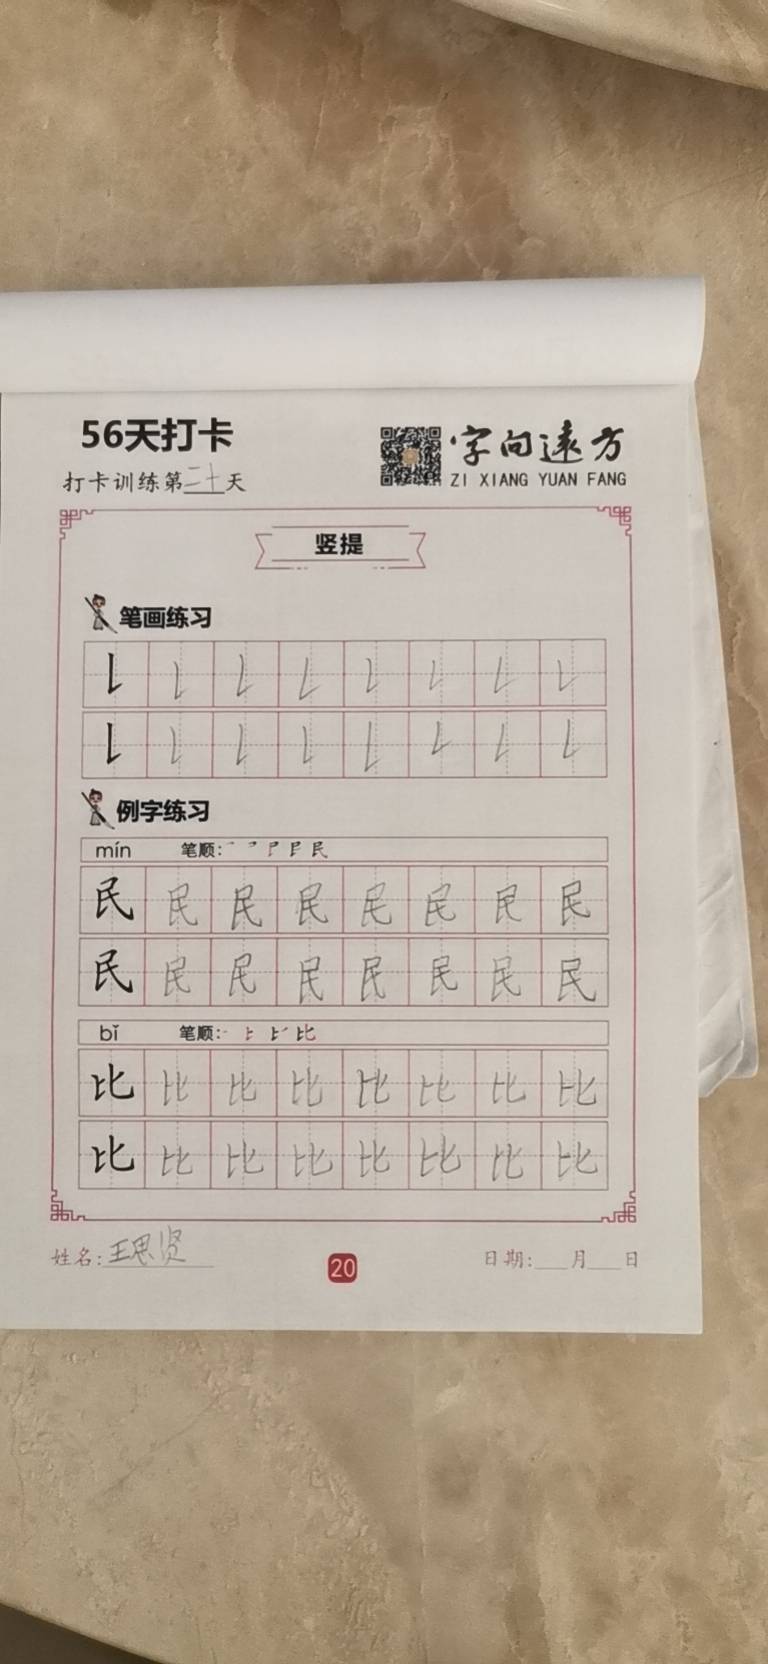 56天打卡
字向遠方
打卡训练第二十天
ZI XIANG YUAN FANG
竖提
笔画练习
例字练习
mín 笔顺: 民
民 民 民 民 民 民 民 民
民 民 民 民 民 民 民 民
bǐ 笔顺: 比
比 比 比 比 比 比 比 比
比 比 比 比 比 比 比 比
姓名:王思贤
20
日期:___月___日